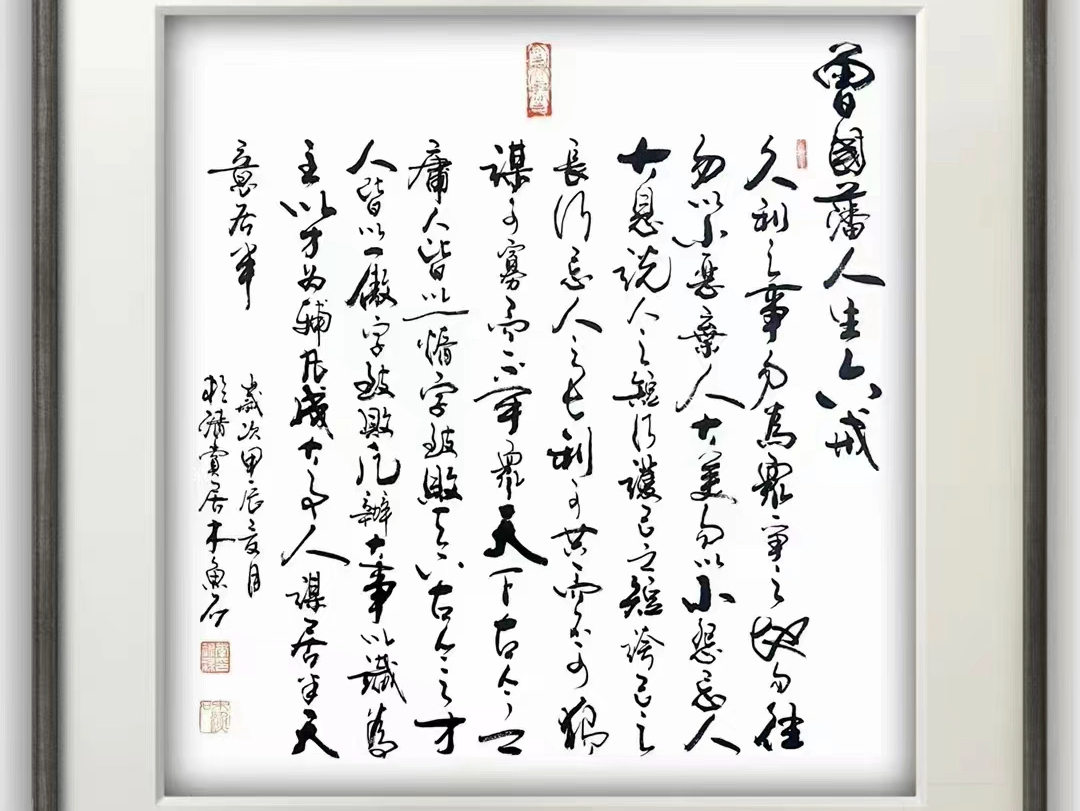 曾國藩人生六戒
久利之事勿為眾争之地勿往
勿以小惡棄人大美勿以小怨忘人
大恩説人之短乃護己之短誇己之
長乃忌人之長利可共而不可獨
謀可寡而不眾天下古今之
庸人皆以一惰字致敗天下古今之才
人皆以一傲字致敗凡辦大事以識為
主以才為輔凡成大事人謀居半天
意居半
歲次甲辰夏月
於清賞居木魚石